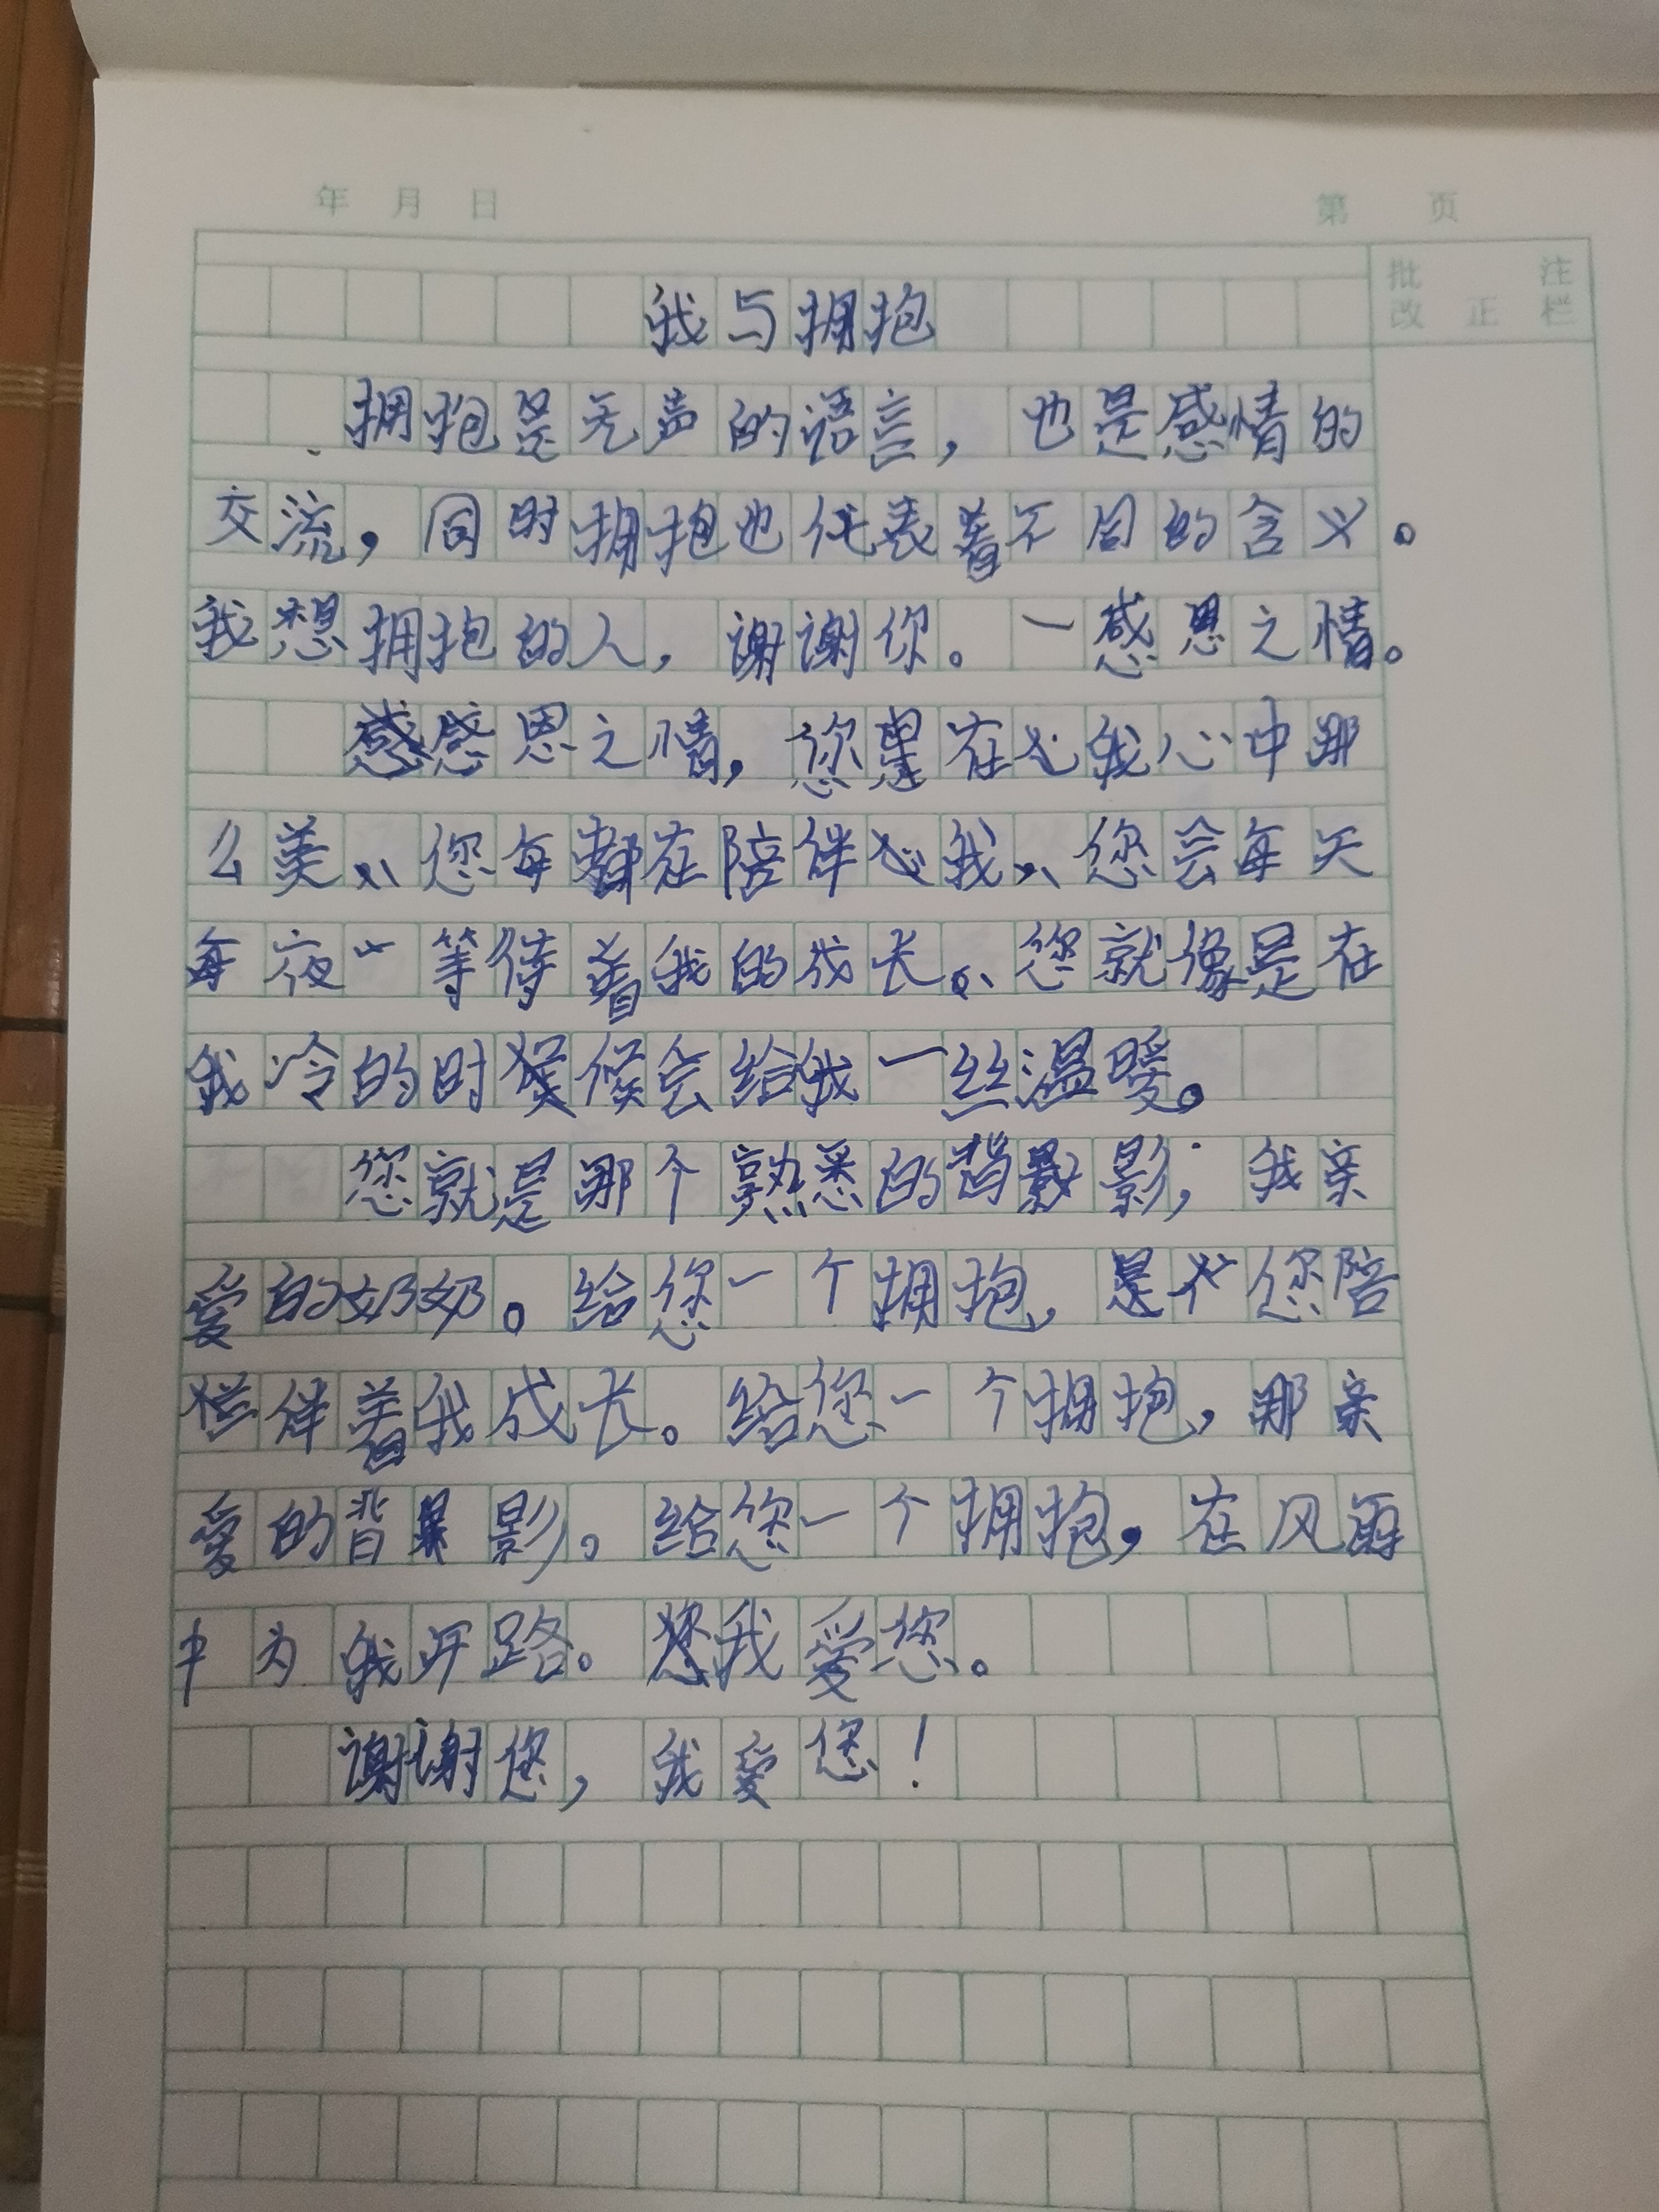 年 月 日 第 页
批 注
改 正 栏
我与拥抱
拥抱是无声的语言，也是感情的
交流，同时拥抱也代表着不同的含义。
我想拥抱的人，谢谢你。一感恩之情。
感恩之情，您在我心中那
么美，您每都在陪伴我，您会每天
每夜等待着我的成长。您就像是在
我冷的时候会给我一丝温暖。
您就是那个熟悉的背影，我亲
爱的奶奶。给您一个拥抱，是您陪
伴着我成长。给您一个拥抱，那亲
爱的背影。给您一个拥抱，在风雨
中为我开路。我爱您。
谢谢您，我爱您！